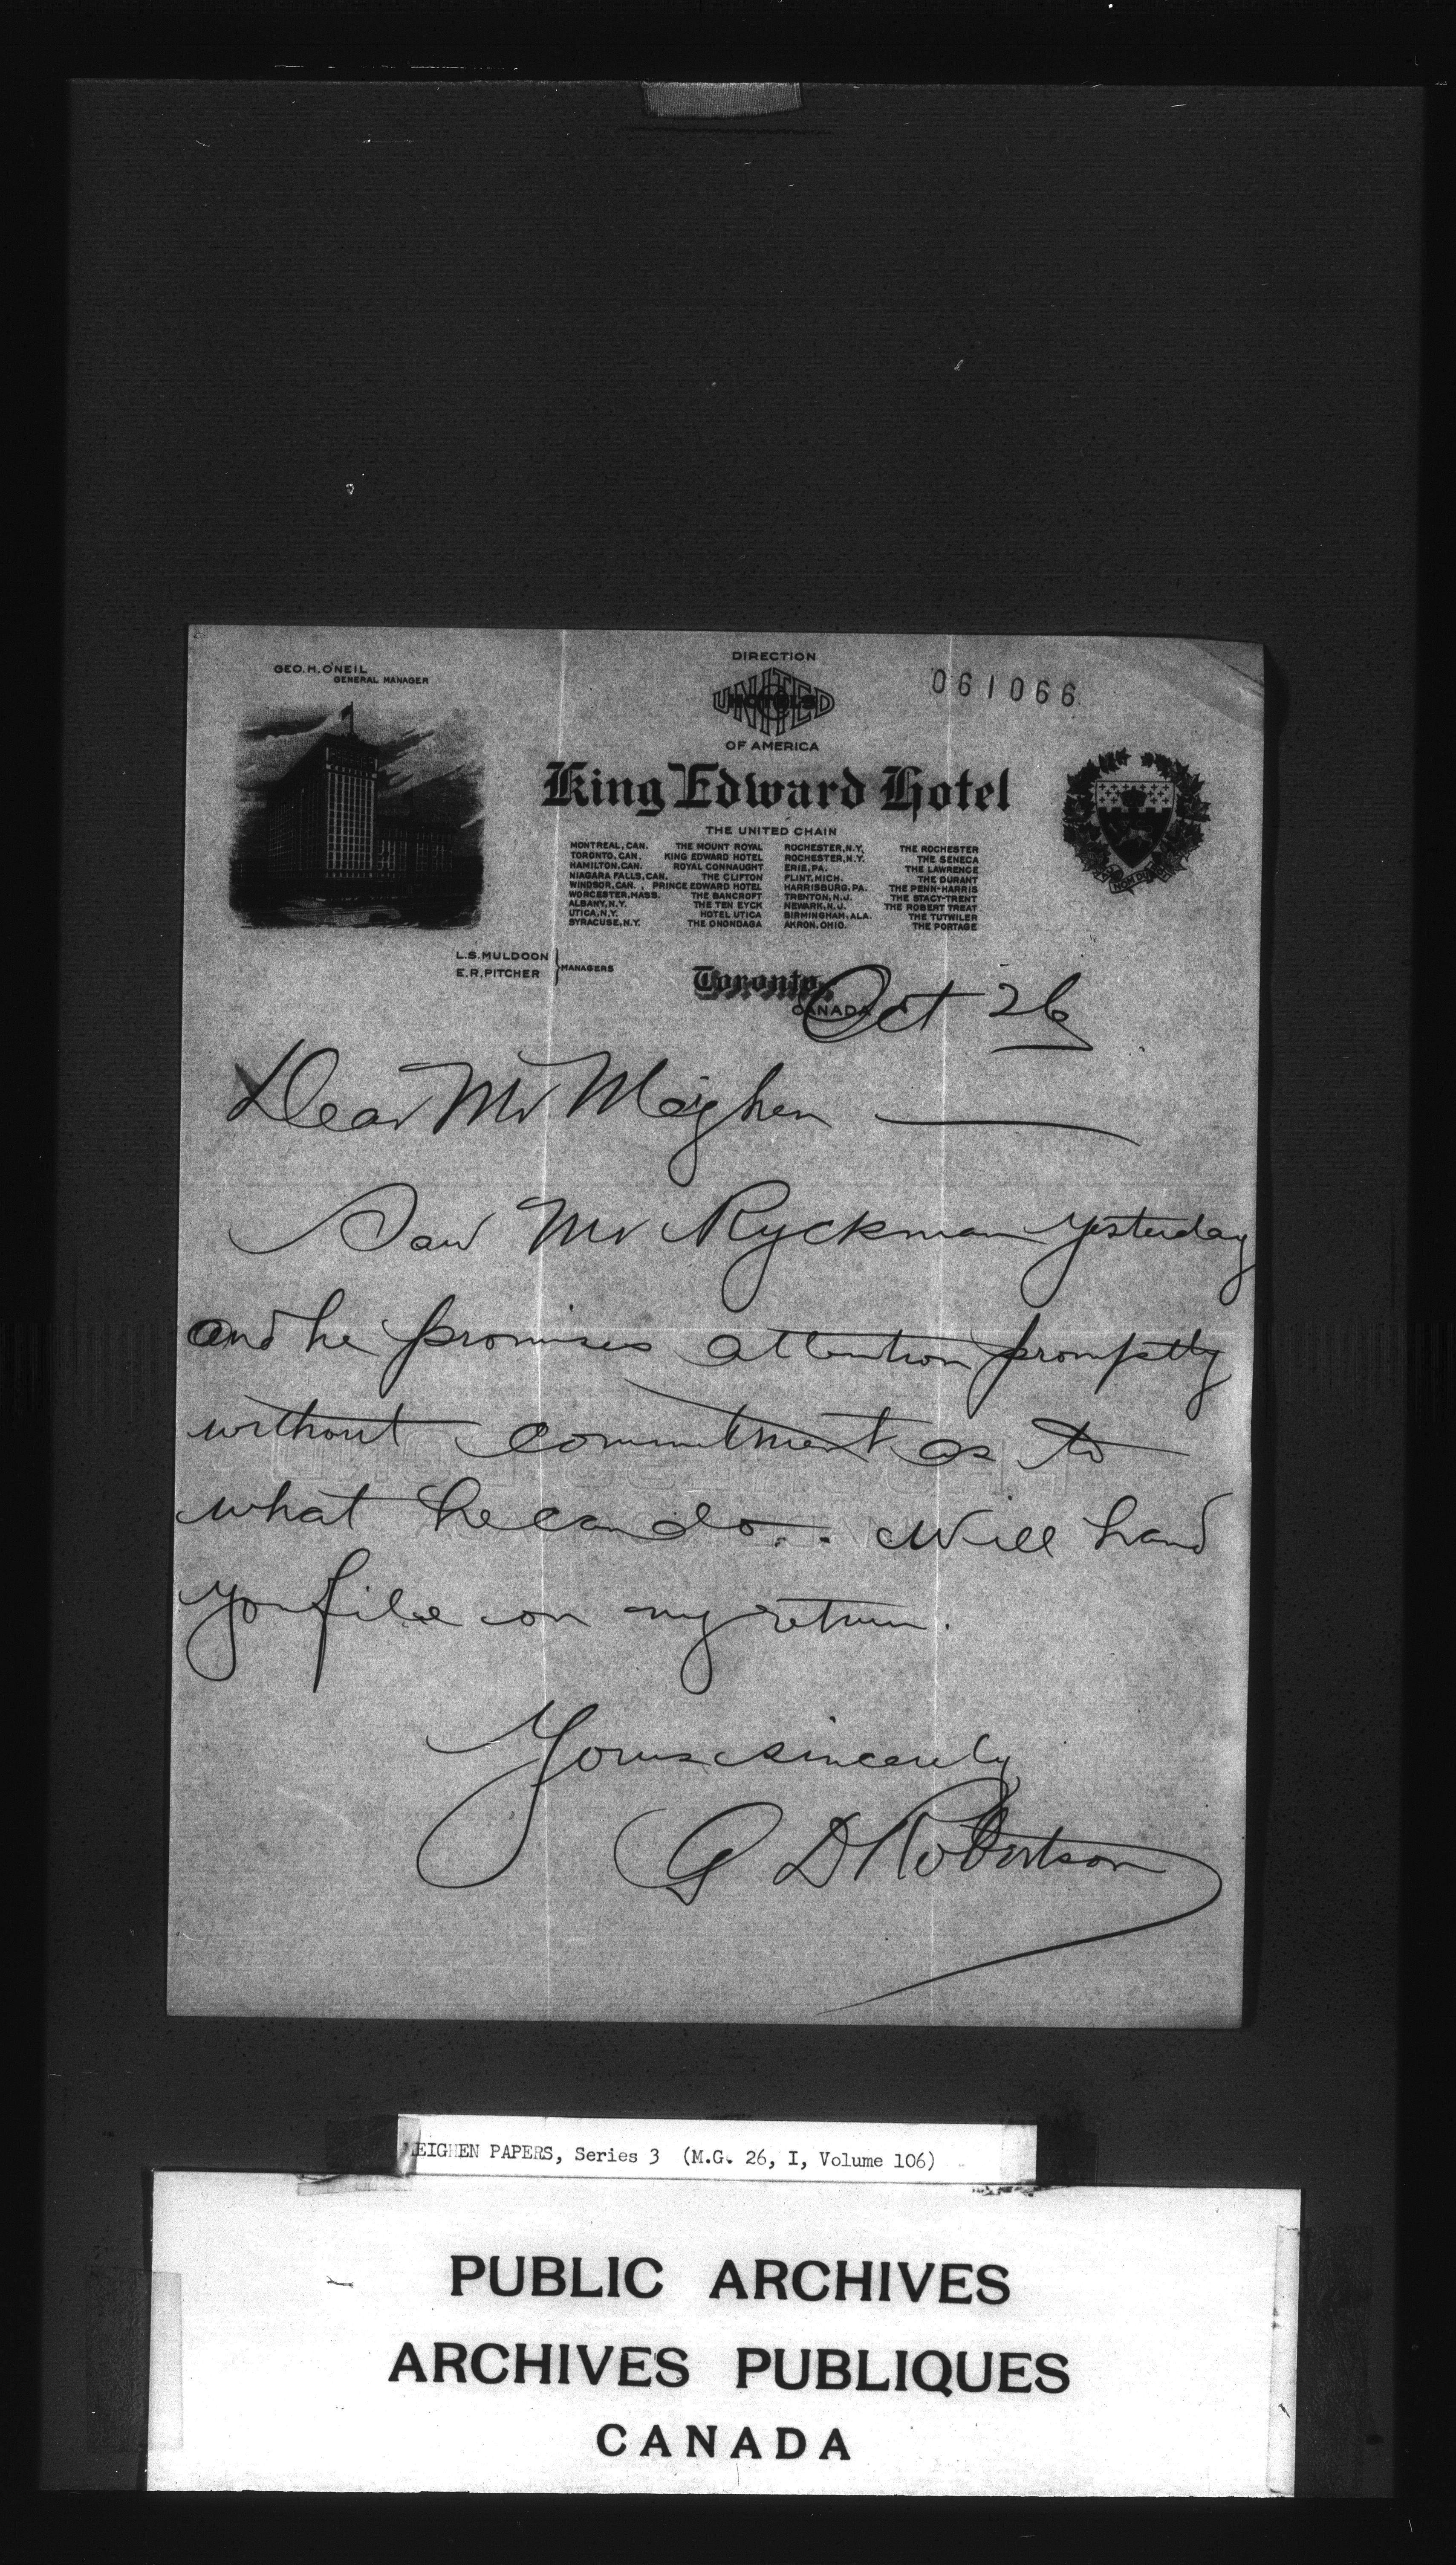 GEO. H. O'NEIL
GENERAL MANAGER
DIRECTION
UNITED HOTELS
OF AMERICA
061066
King Edward Hotel
THE UNITED CHAIN
MONTREAL, CAN. THE MOUNT ROYAL ROCHESTER, N.Y. THE ROCHESTER
TORONTO, CAN. KING EDWARD HOTEL ROCHESTER, N.Y. THE SENECA
HAMILTON, CAN. ROYAL CONNAUGHT ERIE, PA. THE LAWRENCE
NIAGARA FALLS, CAN. THE CLIFTON FLINT, MICH. THE DURANT
WINDSOR, CAN., PRINCE EDWARD HOTEL HARRISBURG, PA. THE PENN-HARRIS
WORCESTER, MASS. THE BANCROFT TRENTON, N.J. THE STACY-TRENT
ALBANY, N.Y. THE TEN EYCK NEWARK, N.J. THE ROBERT TREAT
UTICA, N.Y. HOTEL UTICA BIRMINGHAM, ALA. THE TUTWILER
SYRACUSE, N.Y. THE ONONDAGA AKRON, OHIO. THE PORTAGE
L.S. MULDOON
E.R. PITCHER } MANAGERS
Toronto,
CANADA
Oct 26
Dear Mr Meighen
Saw Mr Ryckman yesterday
and he promises attention promptly
without commitment as to
what he can do.. Will hand
you file on my return.
Yours sincerely
G D Robertson
MEIGHEN PAPERS, Series 3 (M.G. 26, I, Volume 106)
PUBLIC ARCHIVES
ARCHIVES PUBLIQUES
CANADA